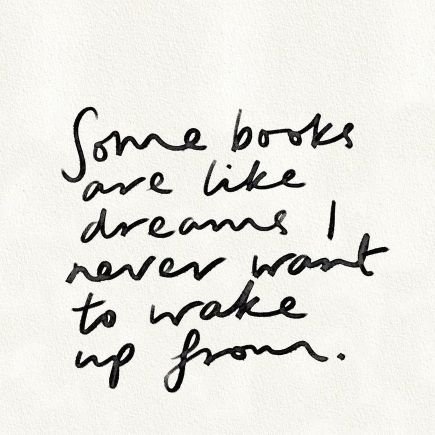 Some books
are like
dreams I
never want
to wake
up from.